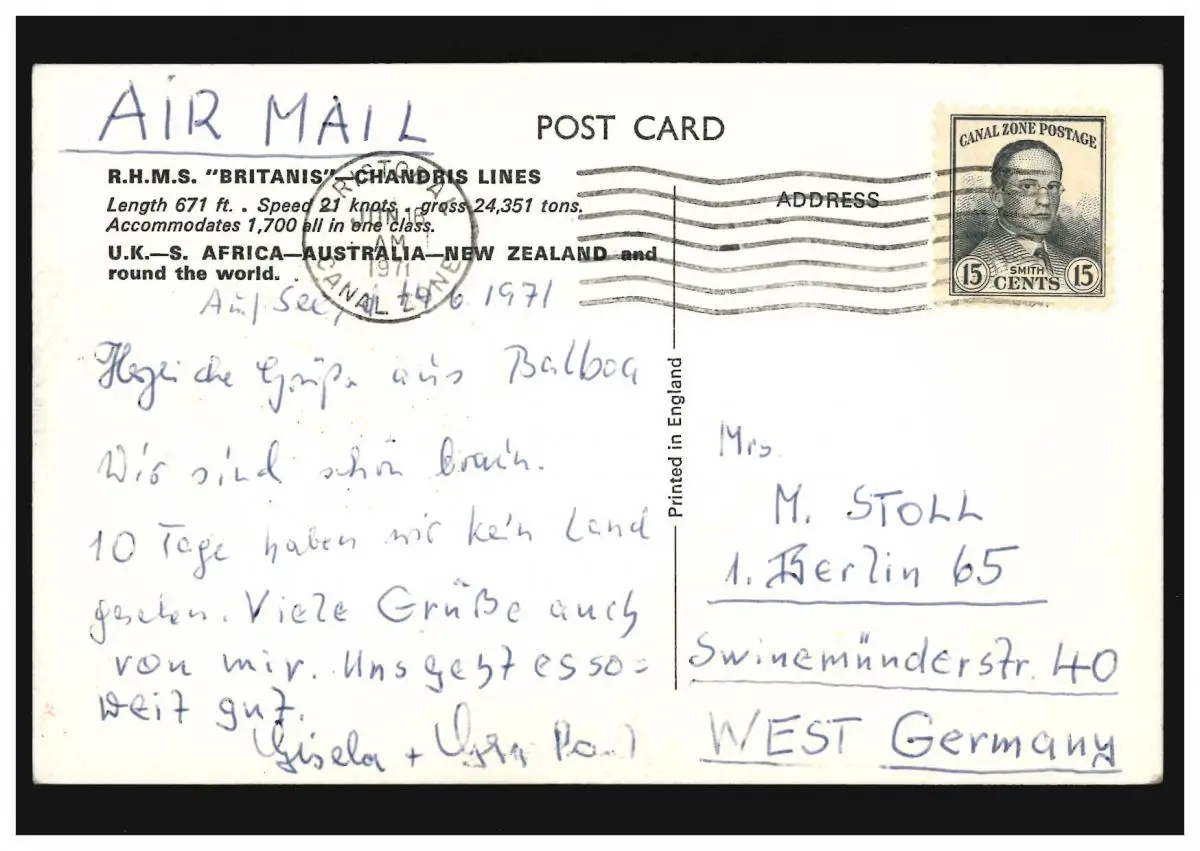 AIR MAIL
POST CARD
R.H.M.S. "BRITANIS"—CHANDRIS LINES
Length 671 ft. . Speed 21 knots . gross 24,351 tons.
Accommodates 1,700 all in one class.
U.K.—S. AFRICA—AUSTRALIA—NEW ZEALAND and
round the world.
CRISTOBAL
JUN 16
AM
1971
CANAL ZONE
ADDRESS
CANAL ZONE POSTAGE
15 SMITH 15
CENTS
Auf See, 6 1971
Herzliche Grüße aus Balboa
Wir sind schön braun.
10 Tage haben wir kein Land
gesehen. Viele Grüße auch
von mir. Uns geht es so=
weit gut.
Gisela +
Printed in England
Mrs.
M. STOLL
1. Berlin 65
Swinemünderstr. 40
WEST Germany